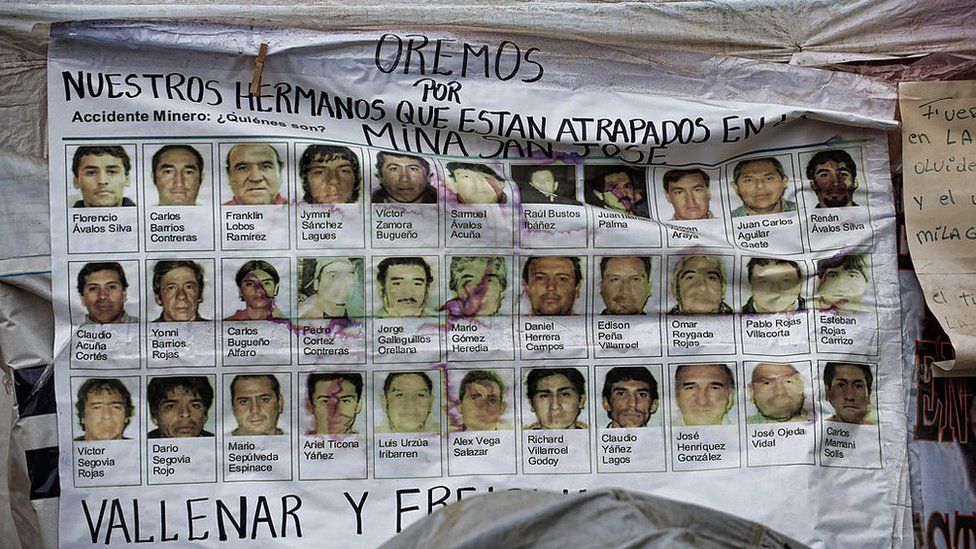 OREMOS
POR
NUESTROS HERMANOS QUE ESTAN ATRAPADOS EN
MINA SAN JOSE
Accidente Minero: ¿Quiénes son?
Florencio
Ávalos Silva
Carlos
Barrios
Contreras
Franklin
Lobos
Ramírez
Jymmi
Sánchez
Lagues
Víctor
Zamora
Bugueño
Samuel
Ávalos
Acuña
Raúl Bustos
Ibáñez
Juan
Palma
Araya
Juan Carlos
Aguilar
Gaete
Renán
Ávalos Silva
Claudio
Acuña
Cortés
Yonni
Barrios
Rojas
Carlos
Bugueño
Alfaro
Pedro
Cortez
Contreras
Jorge
Galleguillos
Orellana
Mario
Gómez
Heredia
Daniel
Herrera
Campos
Edison
Peña
Villarroel
Omar
Reygada
Rojas
Pablo Rojas
Villacorta
Esteban
Rojas
Carrizo
Víctor
Segovia
Rojas
Dario
Segovia
Rojo
Mario
Sepúlveda
Espinace
Ariel Ticona
Yáñez
Luis Urzúa
Iribarren
Alex Vega
Salazar
Richard
Villarroel
Godoy
Claudio
Yáñez
Lagos
José
Henríquez
González
José Ojeda
Vidal
Carlos
Mamani
Solis
VALLENAR Y
en LA
y el
MILAG